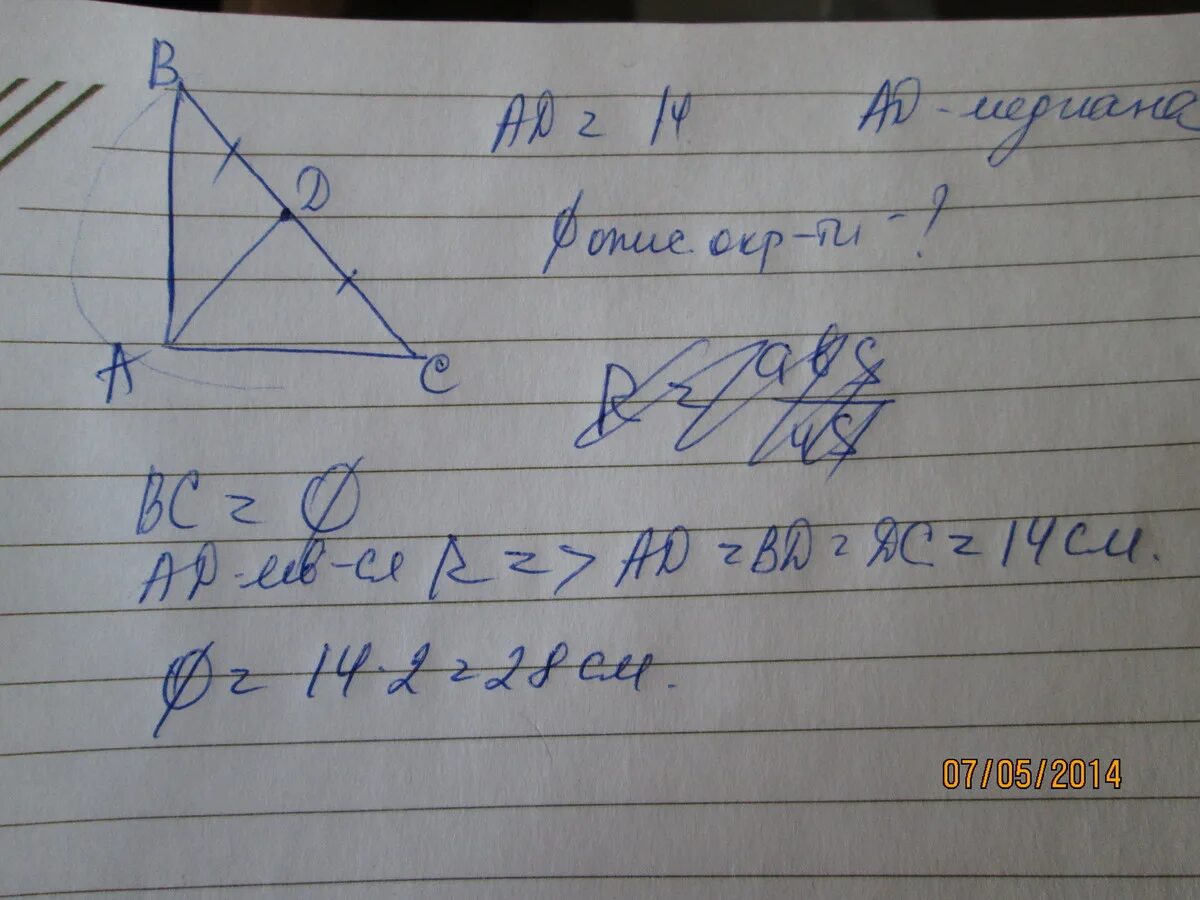 B
D
A
C
AD = 14
AD - медиана
∅ опис. окр-ти - ?
R = abc / 4S
BC = ∅
AD - яв-ся R => AD = BD = DC = 14 см.
∅ = 14 · 2 = 28 см.
07/05/2014